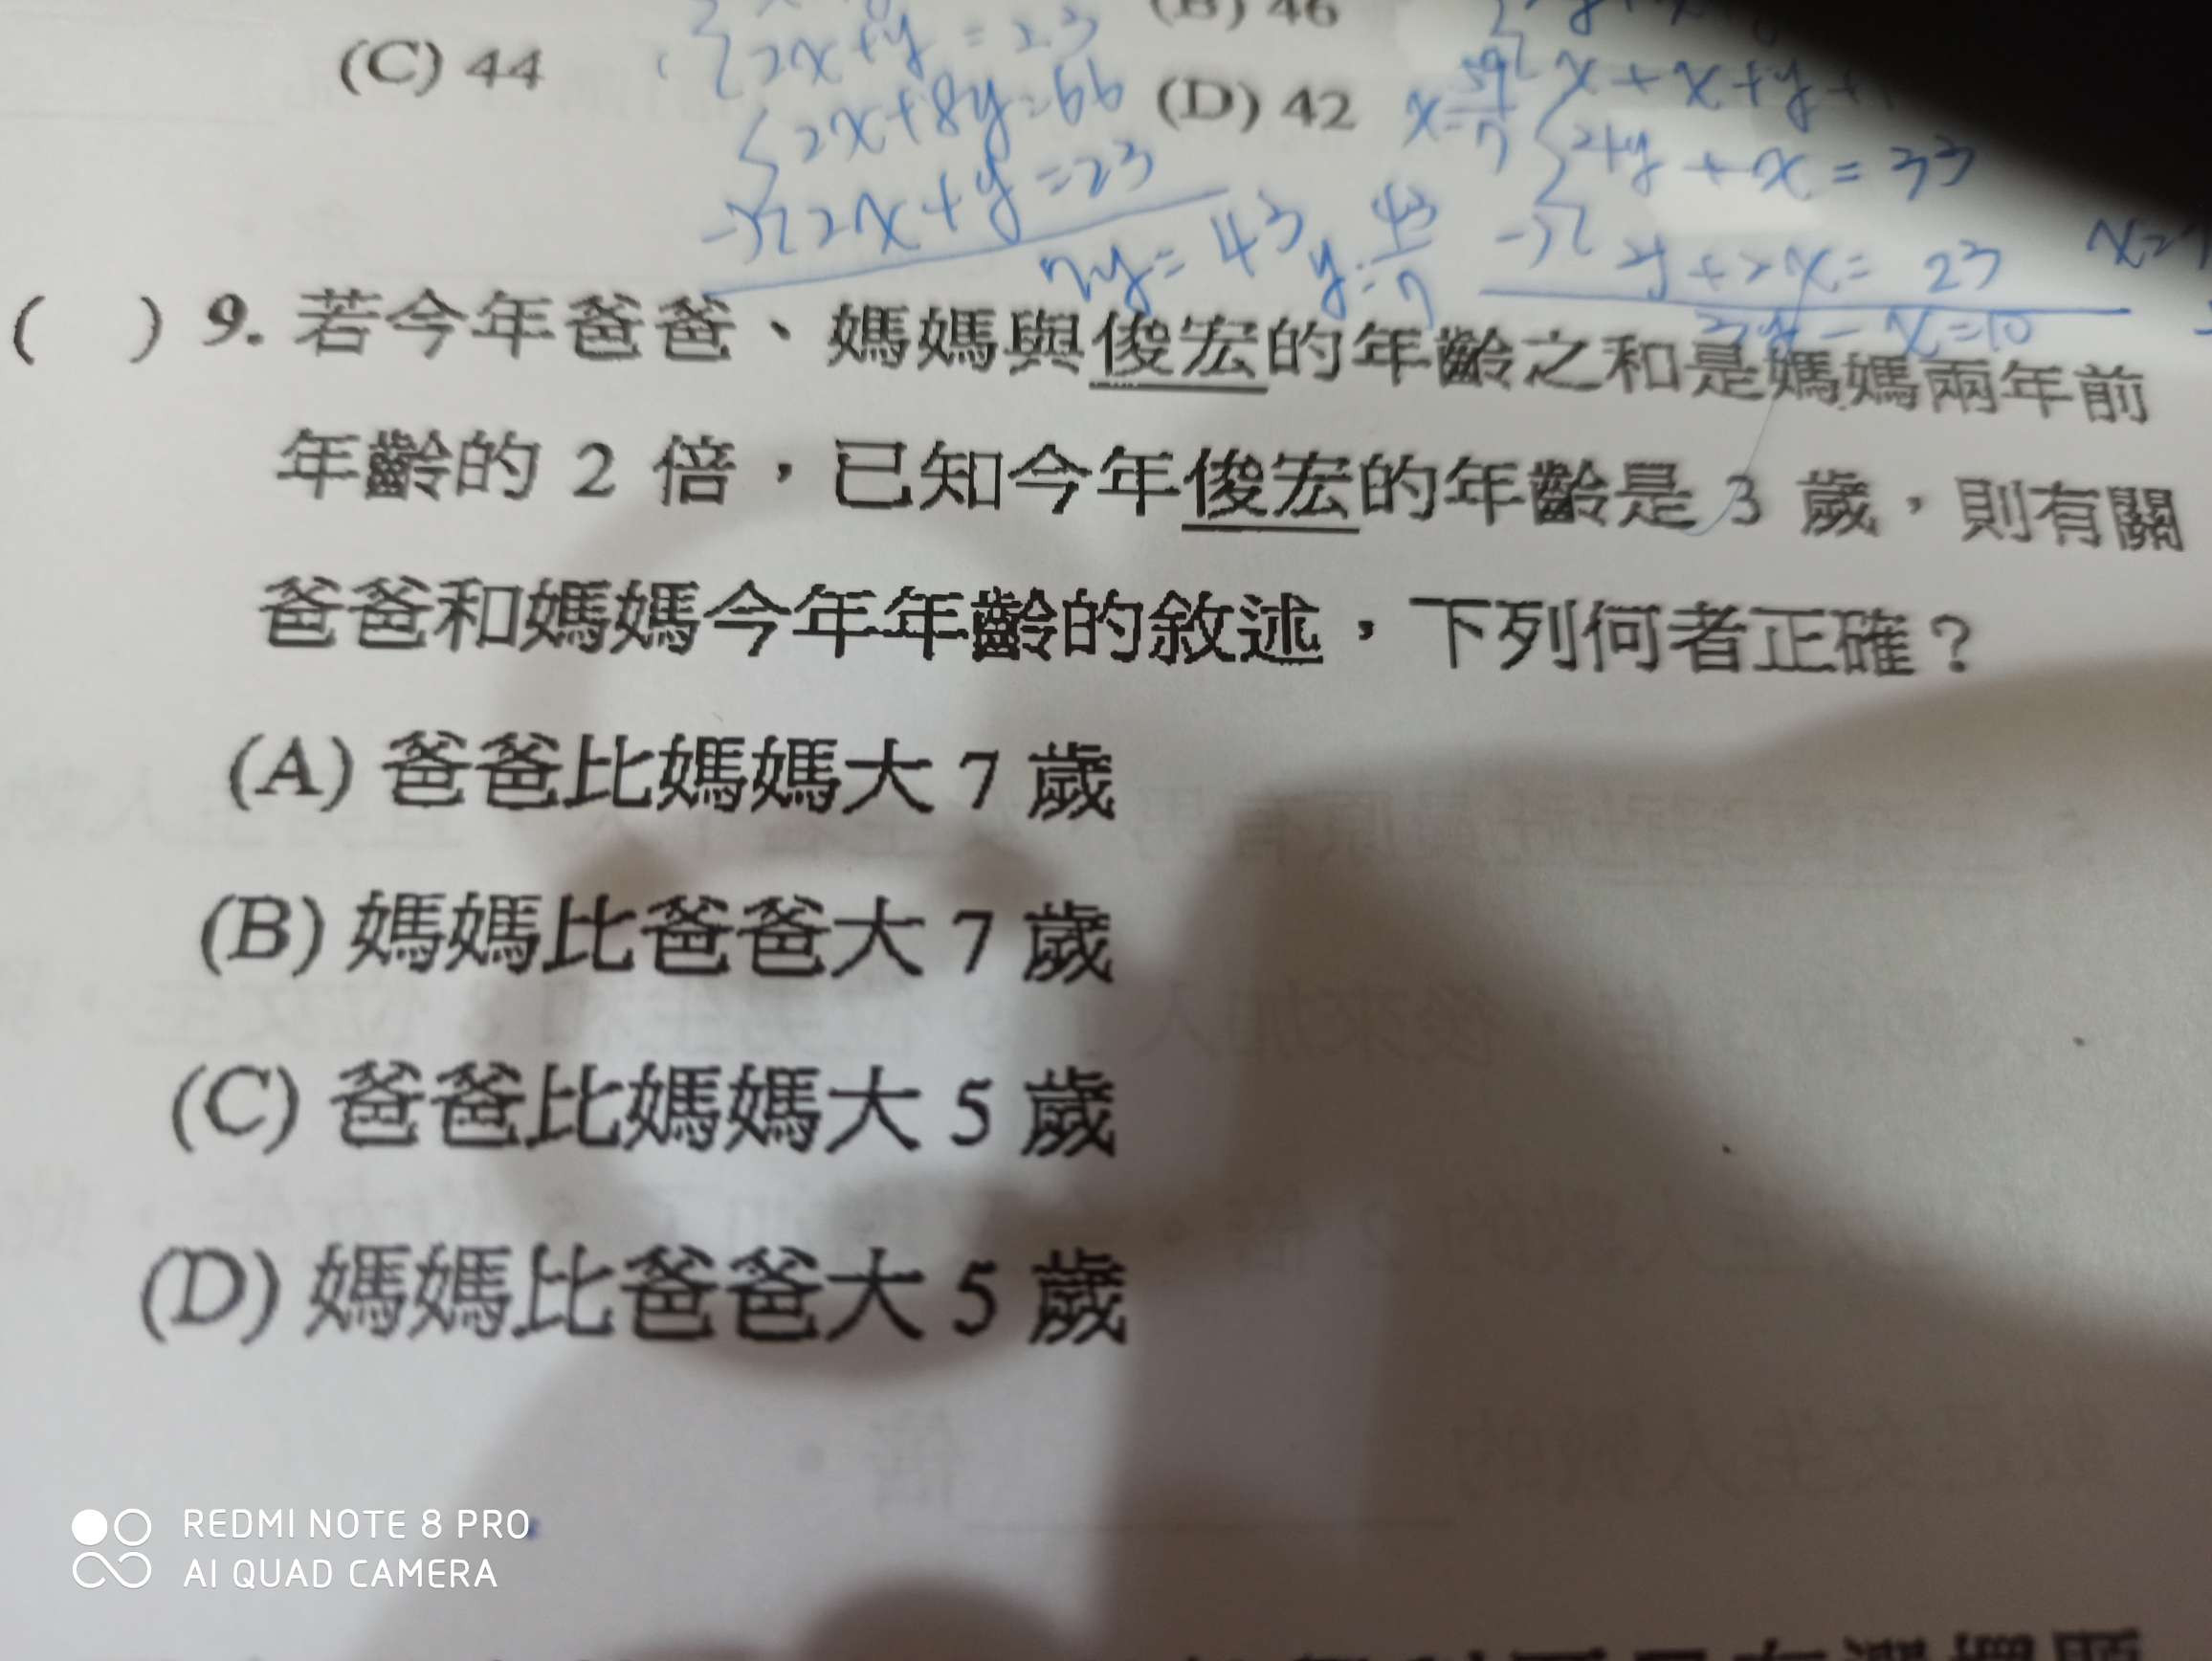 (B) 46
(C) 44
2x+y=23
2x+8y=66
(D) 42
2x+y=23
7y=43
y=43/7
x+x+y+
2+y+x=33
y+2x=23
( ) 9. 若今年爸爸、媽媽與俊宏的年齡之和是媽媽兩年前
年齡的 2 倍，已知今年俊宏的年齡是 3 歲，則有關
爸爸和媽媽今年年齡的敘述，下列何者正確？
(A) 爸爸比媽媽大 7 歲
(B) 媽媽比爸爸大 7 歲
(C) 爸爸比媽媽大 5 歲
(D) 媽媽比爸爸大 5 歲
REDMI NOTE 8 PRO
AI QUAD CAMERA